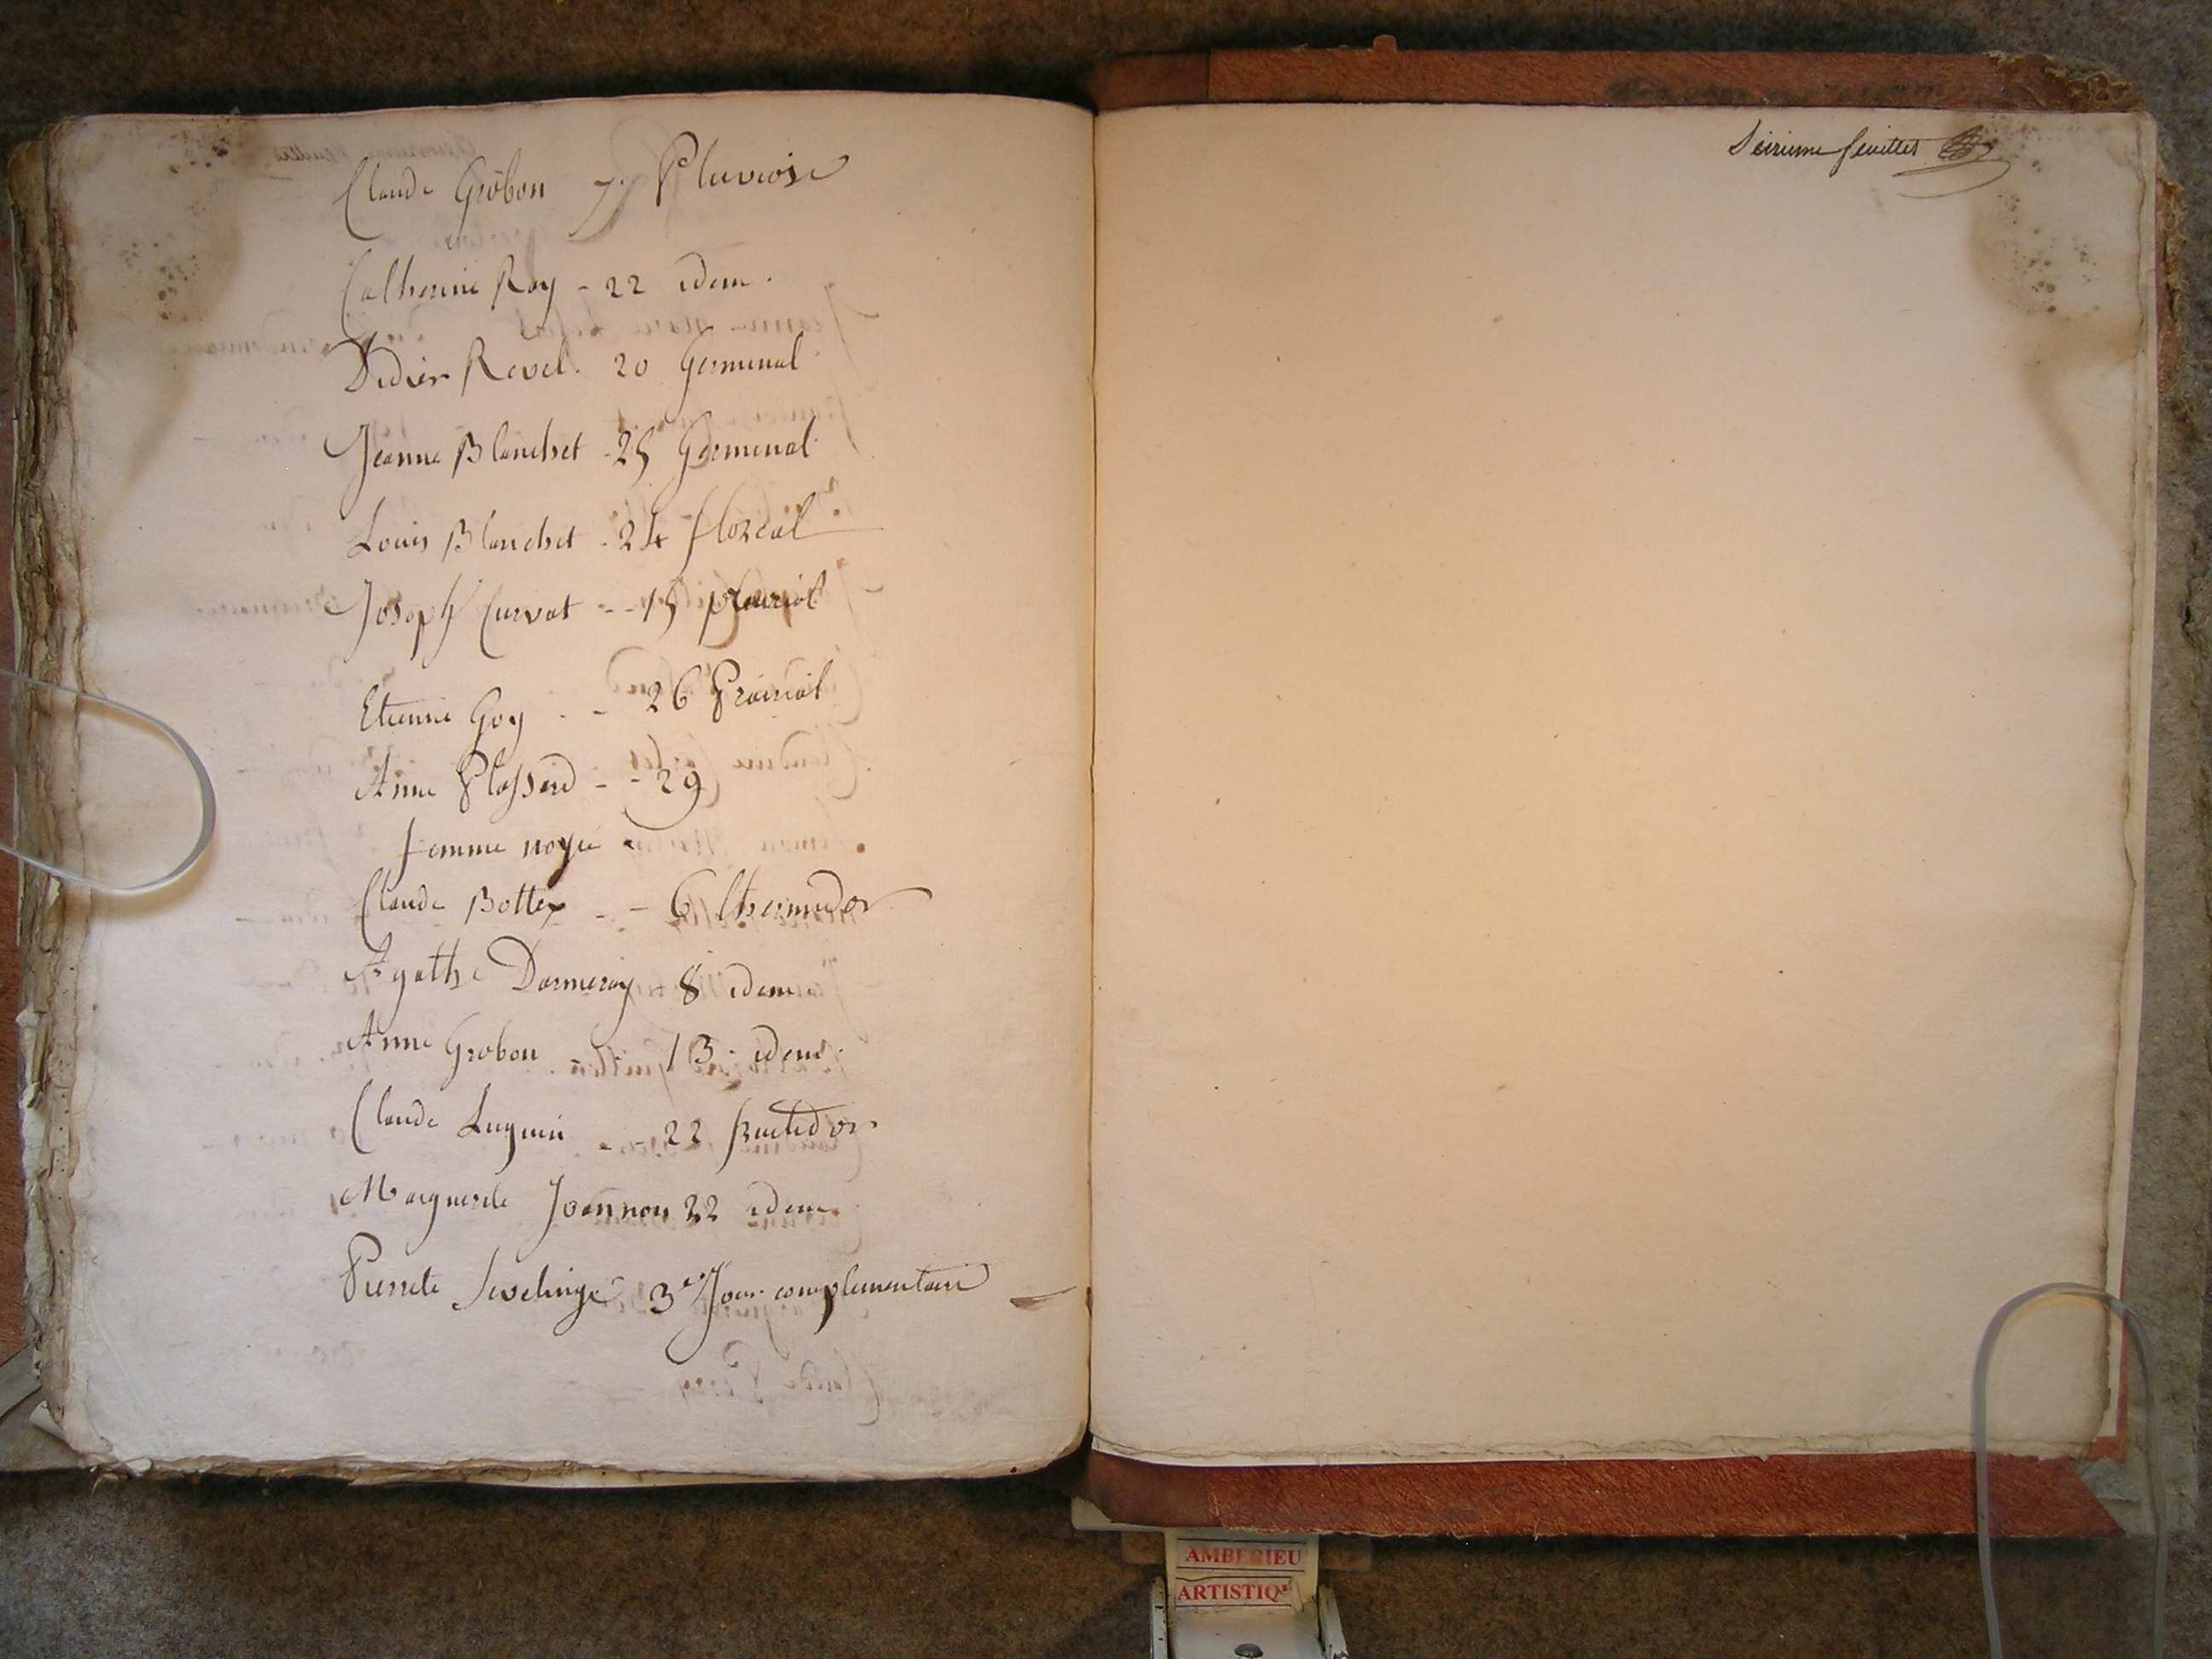 Claude Grobon 7. Pluviose
Catherine Roy - 22 idem.
Didier Revel. 20 Germinal
Jeanne Blanchet - 25 Germinal
Louis Blanchet - 24 floreal
Joseph Curvat - - 15 prairial
Etienne Goy - - 26 Prairial
Anne Plassard - - 29
femme noyée -
Claude Bottex - - 6 thermidor
Agathe Dameray 8 idem
Anne Grobon - - 13 - idem.
Claude Luguin 22 fructidor
Marguerite Joannon 22 idem
Pierrete Sivelinge 3e Jour complementaire
Seizieme feuillet
AMBERIEU
ARTISTIQ